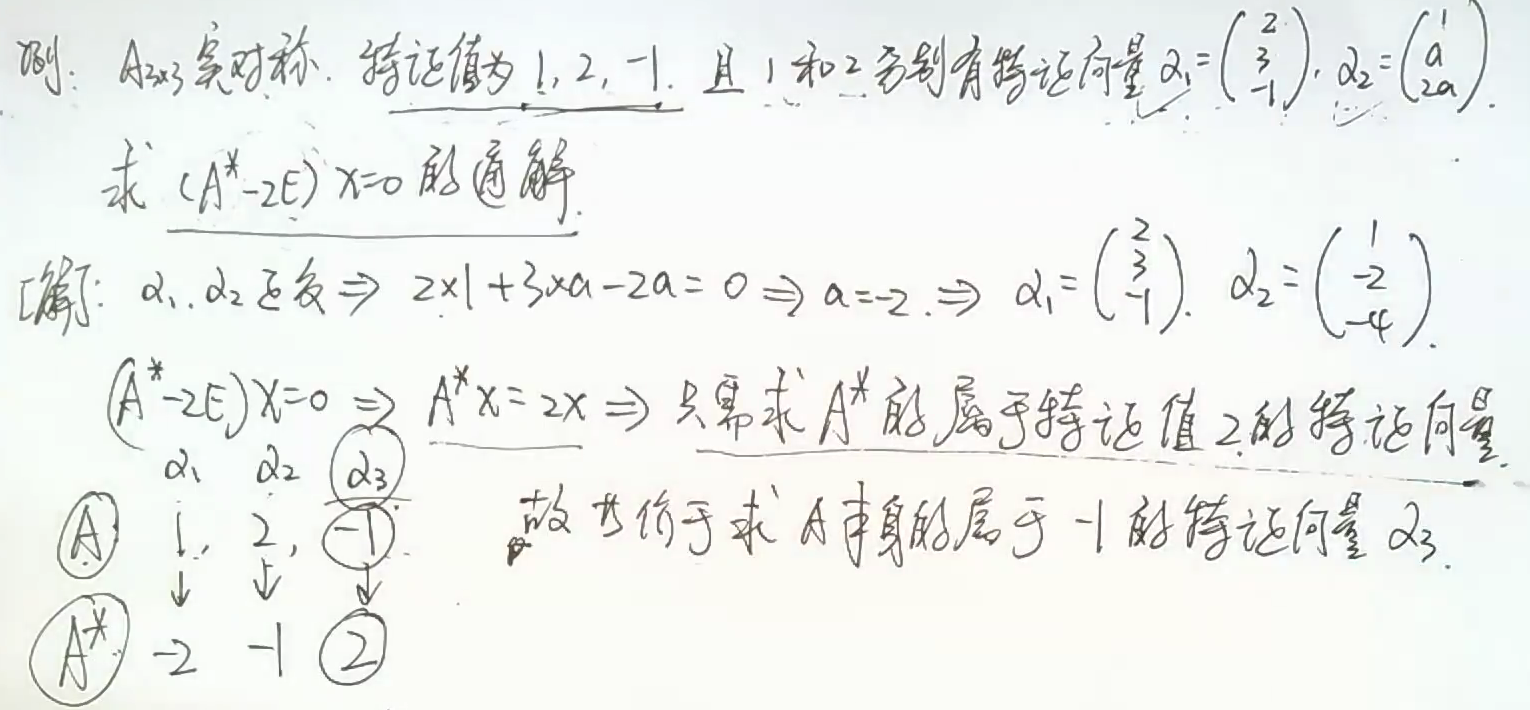 例: A₃ₓ₃实对称. 特征值为 1, 2, -1. 且 1 和 2 分别有特征向量 α₁=(2 3 -1), α₂=(1 a 2a).
求 (A*-2E)x=0 的通解.
[解]: α₁, α₂正交 ⇒ 2×1+3×a-2a=0 ⇒ a=-2. ⇒ α₁=(2 3 -1). α₂=(1 -2 -4).
(A*-2E)x=0 ⇒ A*x=2x ⇒ 只需求 A* 的属于特征值 2 的特征向量.
α₁ α₂ α₃
A 1, 2, -1. 故等价于求 A 本身的属于 -1 的特征向量 α₃.
↓ ↓ ↓
A* -2 -1 2